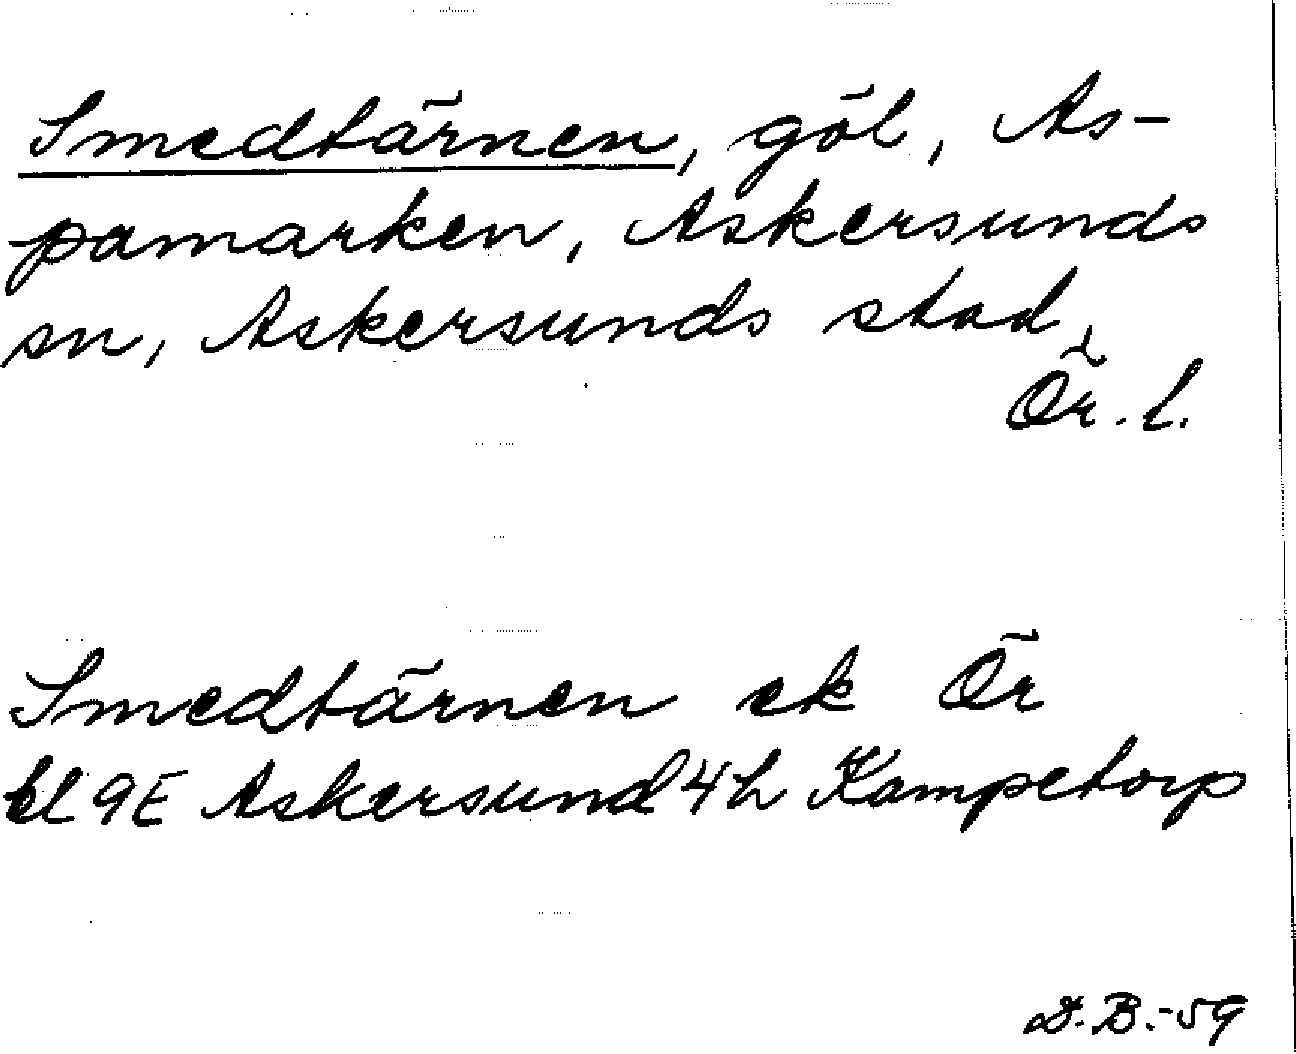 Smedtärnen, göl, As-
pamarken, Askersunds
sn, Askersunds stad,
Ör. l.
Smedtärnen ek Ör
bl 9E Askersund 4h Kampetorp
D.B.-59